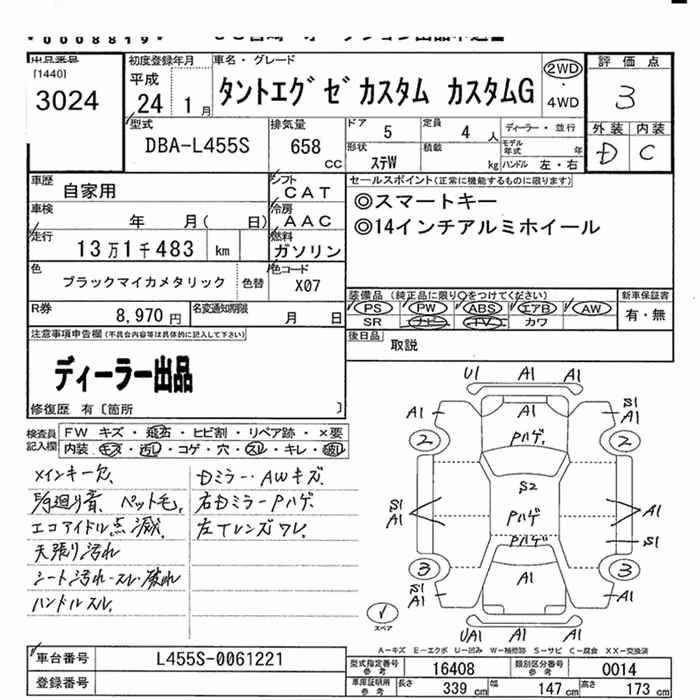 0008819
出品番号
[1440]
3024
初度登録年月
平成
24 1 月
車名・グレード
タントエグゼカスタム カスタムG
2WD
・
4WD
評価点
3
外装 内装
D C
型式
DBA-L455S
排気量
658
CC
ドア 5
定員 4 人
ディーラー・並行
形状 ステW
積載 kg
モデル年式 年
ハンドル 左・右
車歴
自家用
シフト
CAT
セールスポイント(正常に機能するものに限ります)
◎スマートキー
◎14インチアルミホイール
車検
年 月( 日)
冷房
AAC
走行
13万1千483 km
燃料
ガソリン
色
ブラックマイカメタリック 色替
色コード
X07
装備品(純正品に限り○をつけてください) 新車保証書
PS PW ABS エアB AW 有・無
SR ナビ TV カワ
R券
8,970 円
名変通知期限
月 日
後日品
取説
注意事項申告欄(不具合内容等は具体的に記入して下さい)
ディーラー出品
修復歴 有〔箇所 〕
検査員
記入欄
FW キズ・飛石・ヒビ割・リペア跡・×要
内装・キズ・汚レ・コゲ・穴・スレ・キレ・破レ
メインキー欠、
Dミラー・AWキズ
右Dミラー Pハゲ、
左Tレンズワレ、
エコアイドル点滅、
天張り汚れ
シート汚れ・スレ・破れ
ハンドルスレ、
U1 A1 A1
A1 A1 S1
A1
2 Pハゲ、 2
S2
S1
A1 Pハゲ A1
Pハゲ S1
3 A1 3
S1
A1 A1
スペア
UA1 A1 A1
A-キズ E-エクボ U-凹み W-補修跡 S-サビ C-腐食 XX-交換済
車台番号
L455S-0061221
登録番号
型式指定番号
参考
16408
類別区分番号
参考
0014
車庫証明用
参考
長さ 339 cm 幅 147 cm 高さ 173 cm